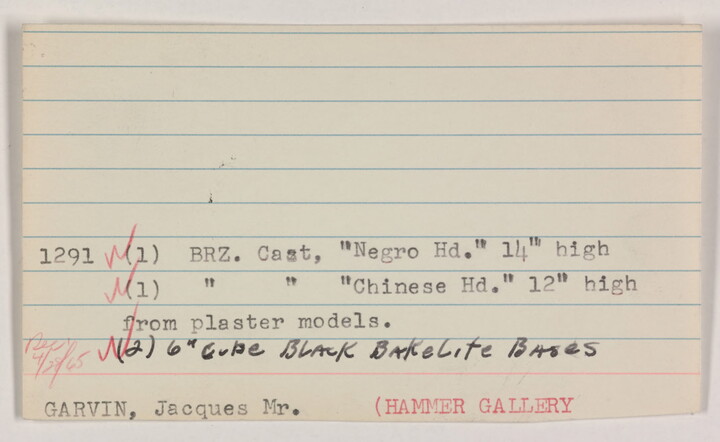 1291 (1) BRZ. Cast, "Negro Hd." 14" high
(1) " " "Chinese Hd." 12" high
from plaster models.
(2) 6" Cube BLACK BAKELITE BASES
4/28/65
GARVIN, Jacques Mr. (HAMMER GALLERY